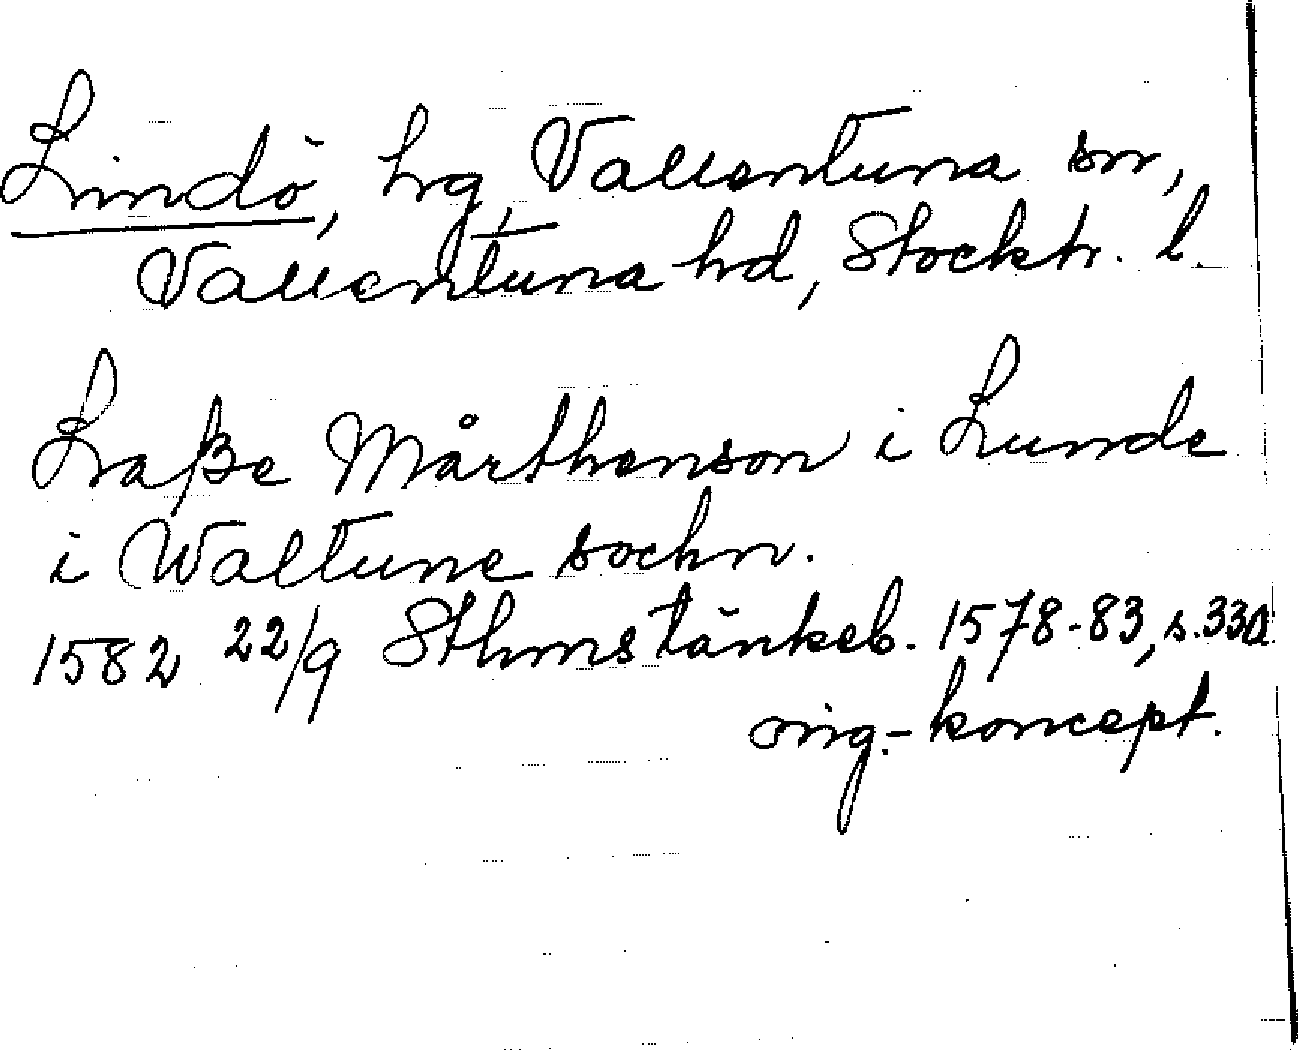 Lindö, hrg, Vallentuna sn,
Vallentuna hd, Stockh. l.
Laße Mårthenson i Lunde
i Waltune sochn.
1582 22/9 Sthms tänkeb. 1578-83, s. 330
orig.-koncept.